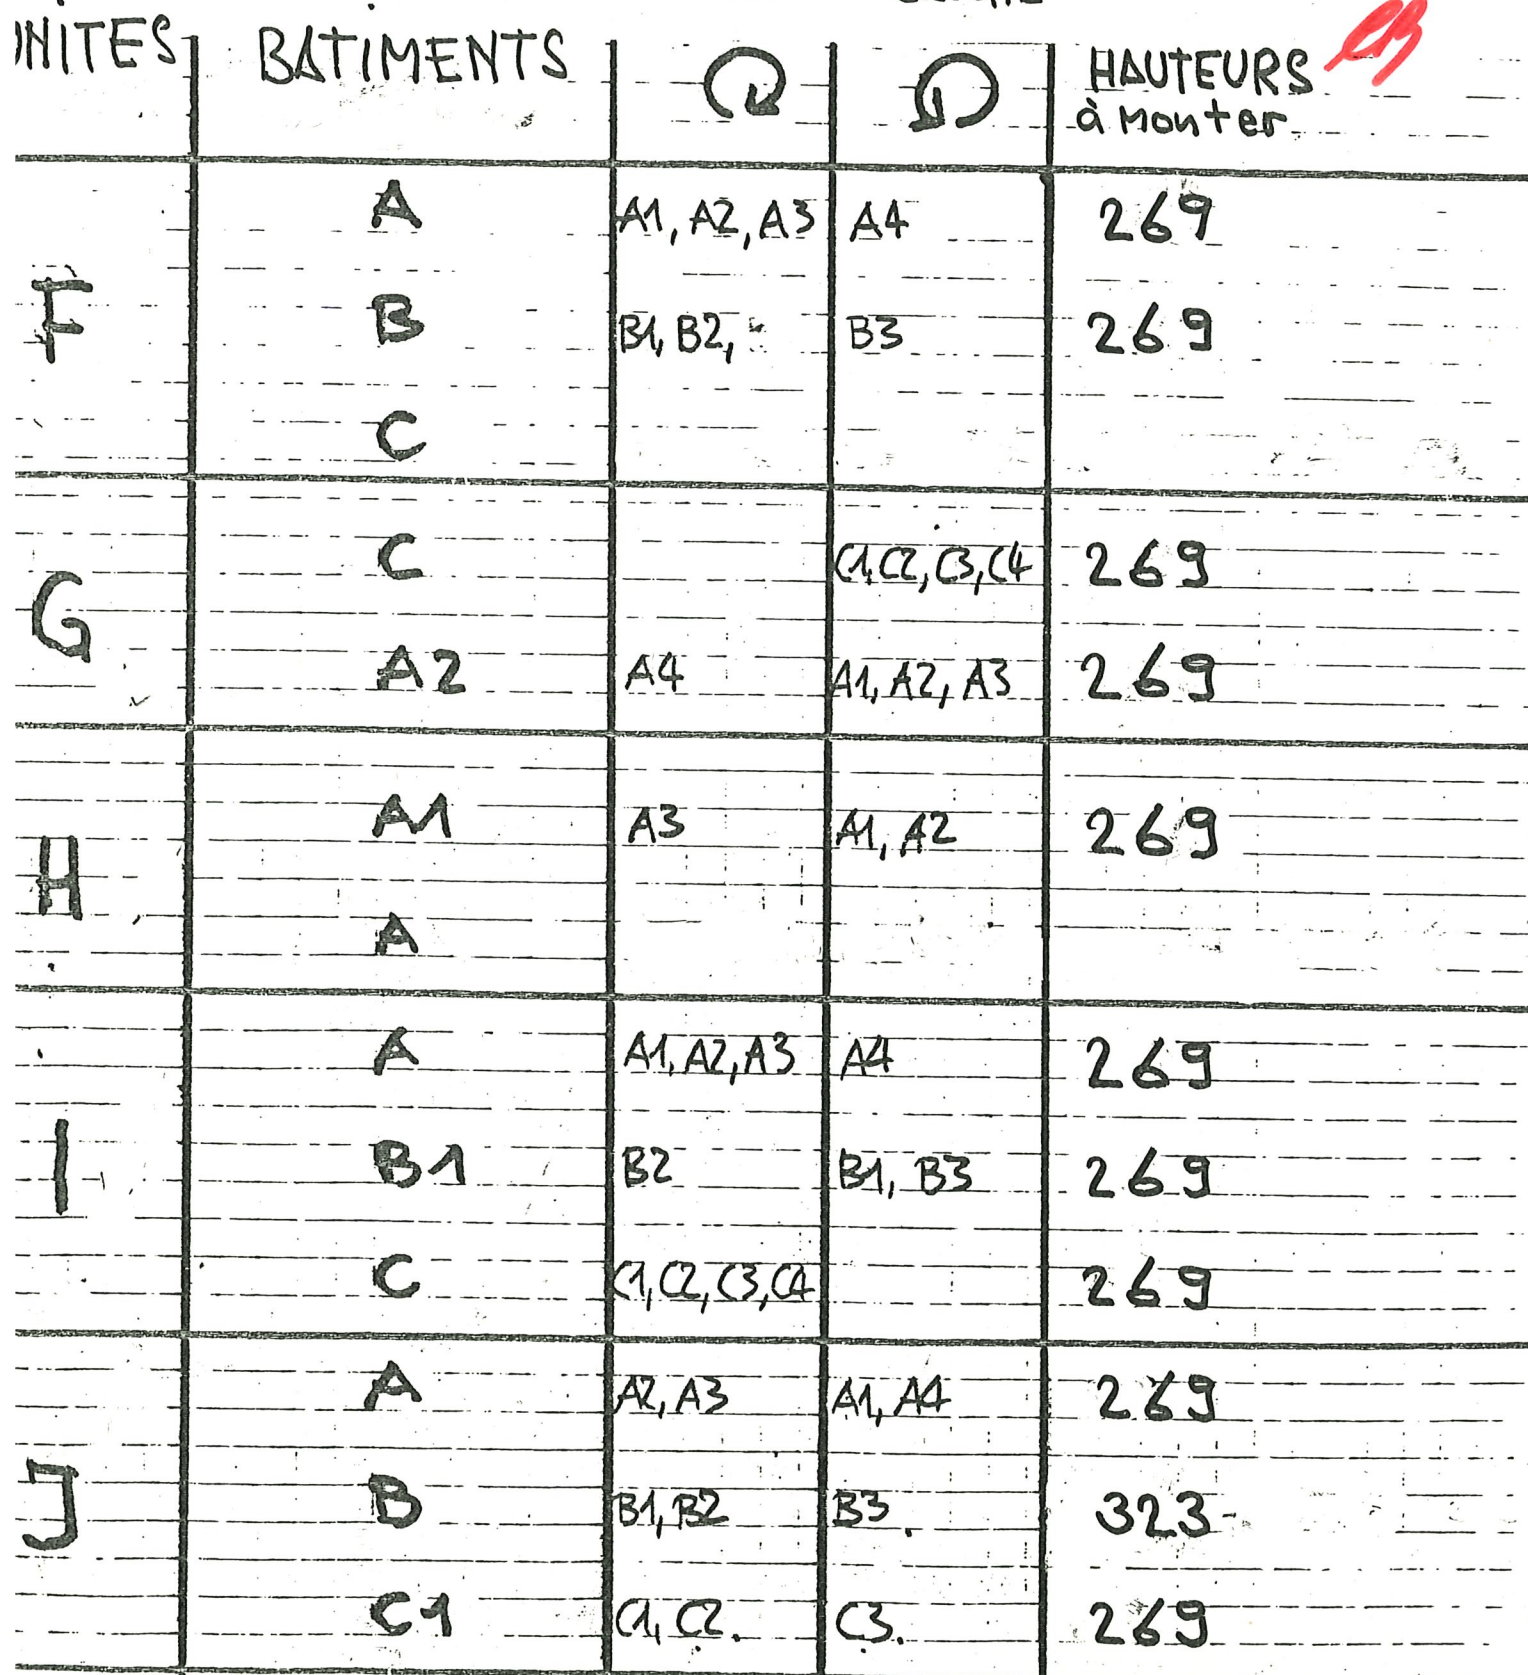 UNITES BATIMENTS HAUTEURS
à monter
A A1, A2, A3 A4 269
F B B1, B2, B3 269
C
C C1, C2, C3, C4 269
G
A2 A4 A1, A2, A3 269
A1 A3 A1, A2 269
H
A
A A1, A2, A3 A4 269
I B1 B2 B1, B3 269
C C1, C2, C3, C4 269
A A2, A3 A1, A4 269
J B B1, B2 B3. 323
C1 C1, C2. C3. 269